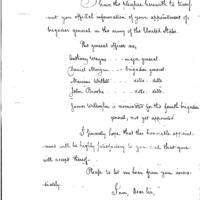 I have the pleasure herewith to transmit
you official information of your appointment of
brigadier general in the army of the United States.
The general officers are,
Anthony Wayne major general
Daniel Morgan brigadier general
Marinus Willett ditto ditto
John Brooks ditto ditto
James Wilkinson is nominated for the fourth brigadier
general, not yet appointed
I sincerely hope that this honorable appoint-
ment will be highly satisfactory to you and that you
will accept thereof.
Please to let me hear from you imme-
diately.
I am, Dear Sir,